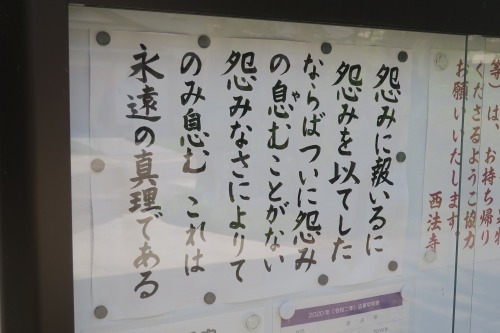 怨みに報いるに
怨みを以てした
ならばついに怨み
の息むことがない
や
怨みなさによりて
のみ息む これは
永遠の真理である
等)は、お持ち帰り
くださるようご協力
お願いいたします。
西法寺
2020年(令和二年)